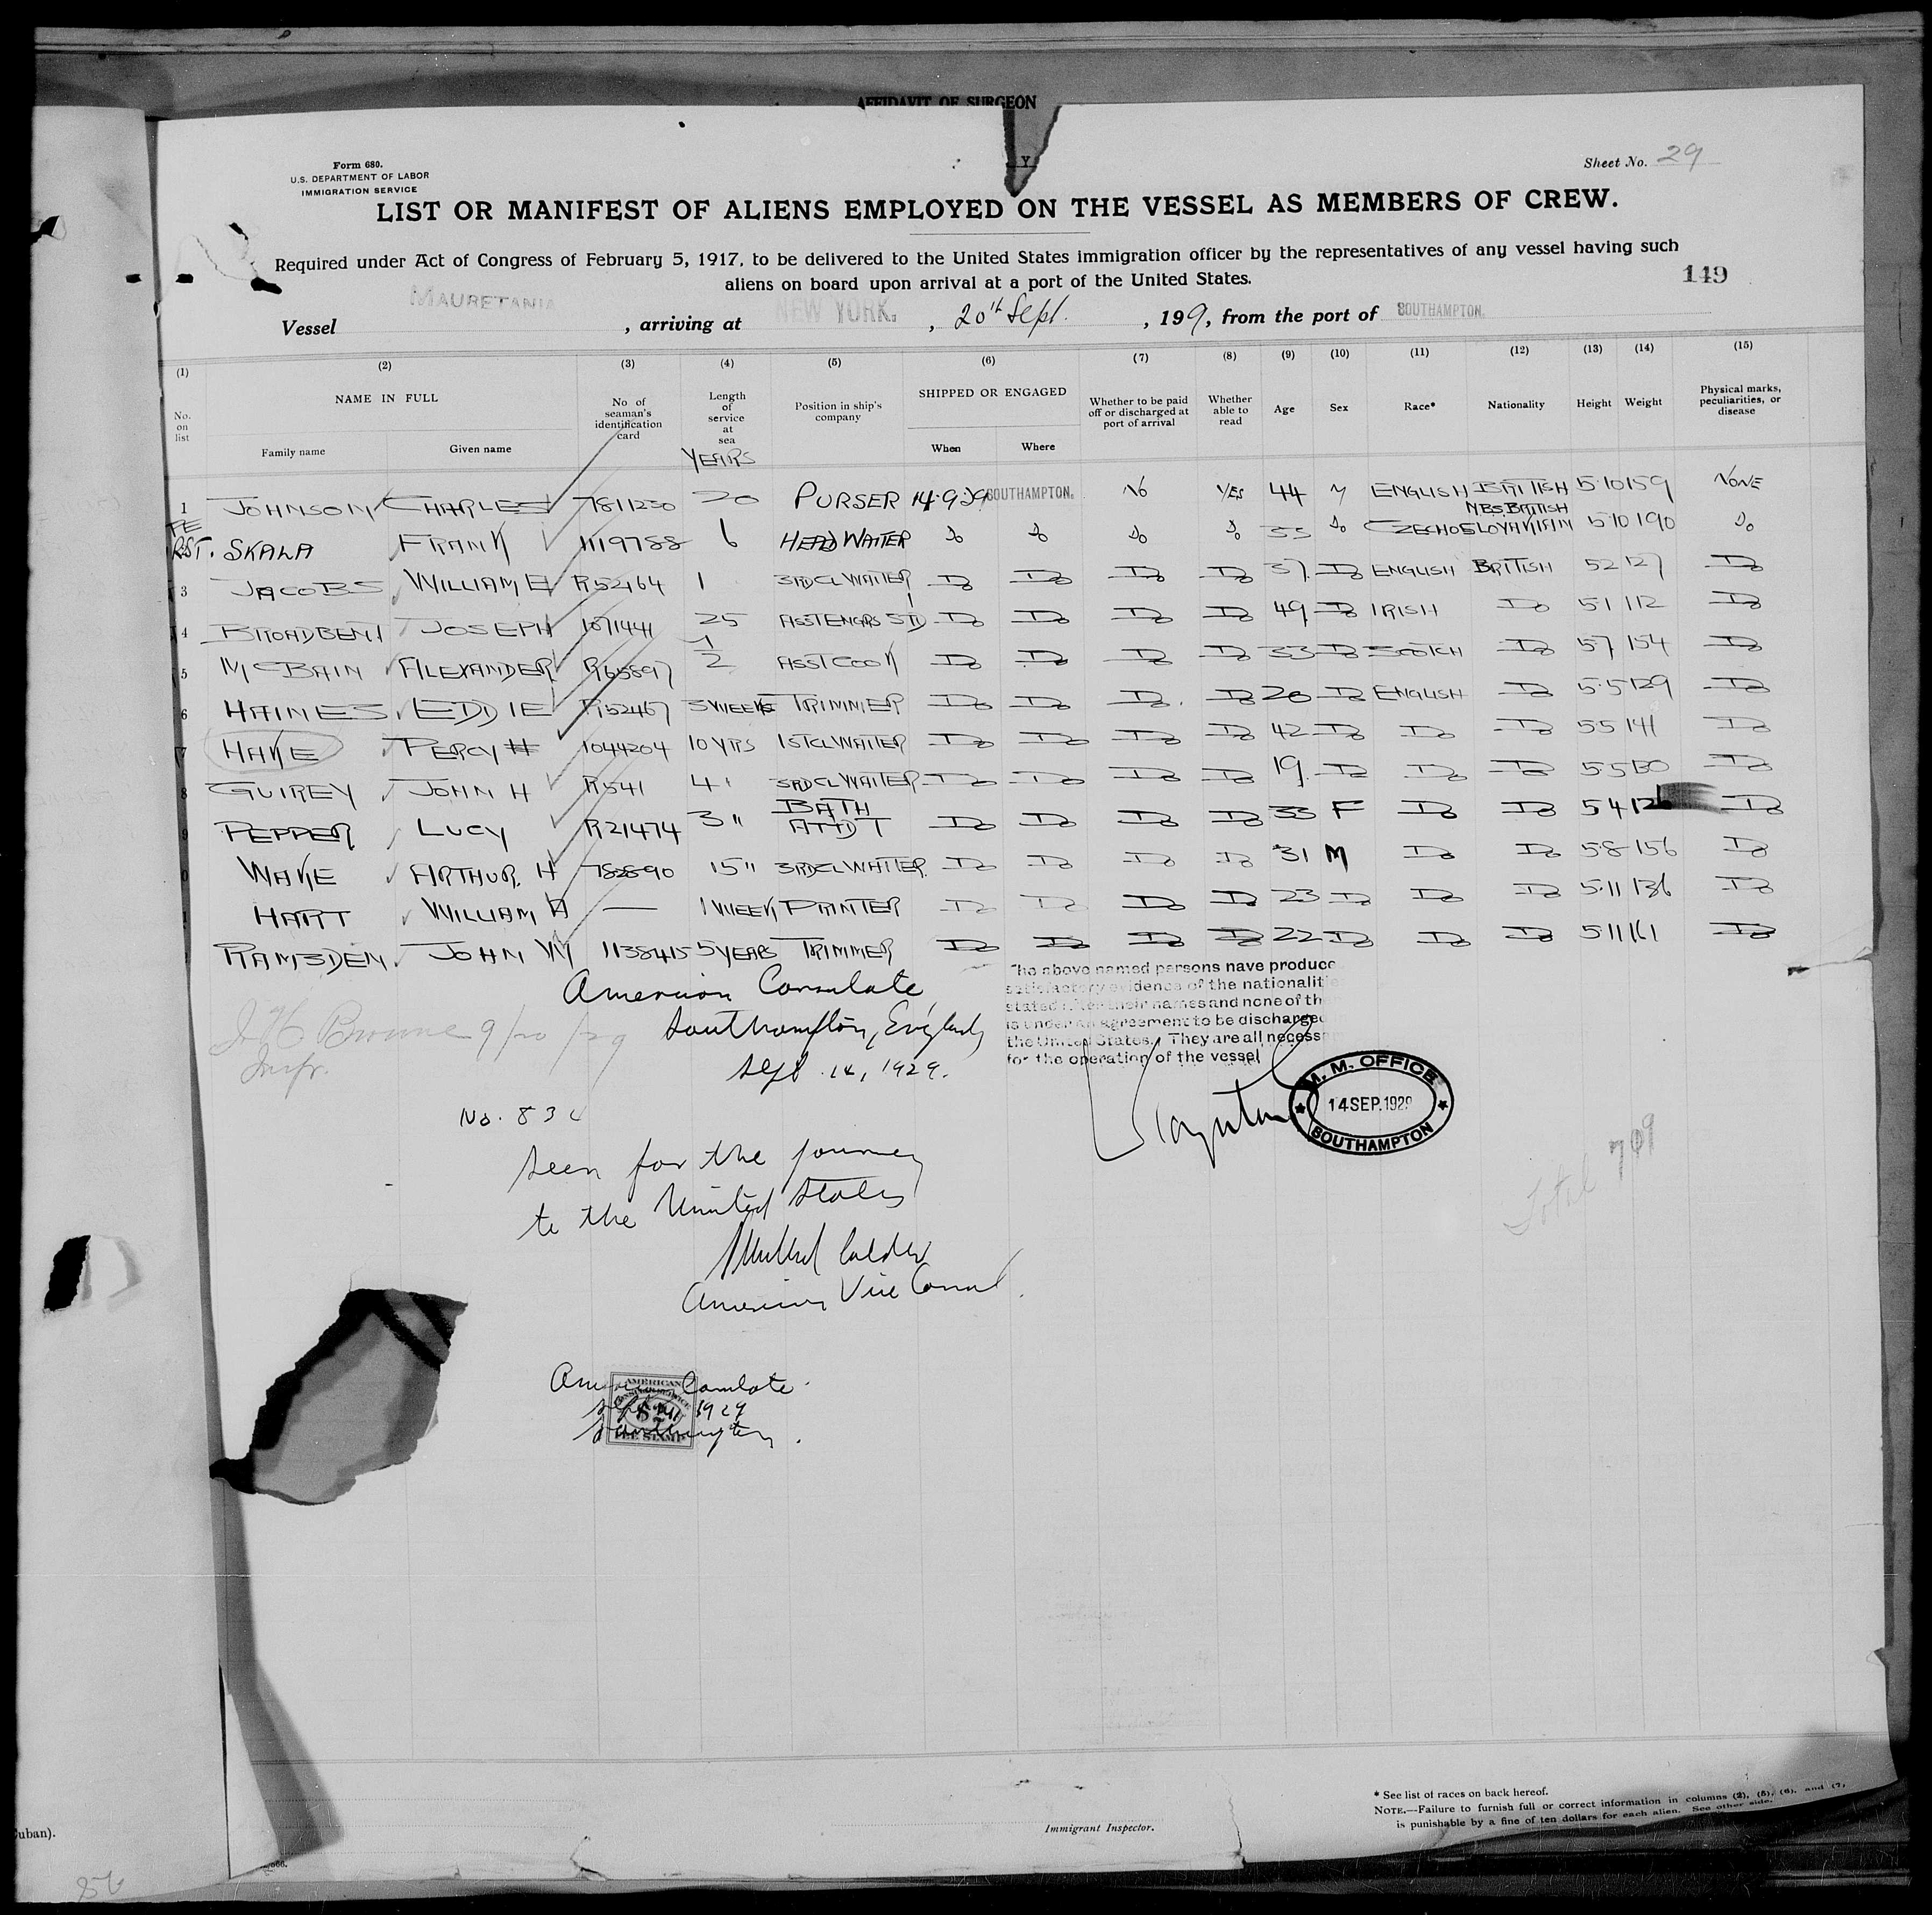 AFFIDAVIT OF SURGEON
Y
Form 680.
U.S. DEPARTMENT OF LABOR
IMMIGRATION SERVICE
Sheet No. 29
LIST OR MANIFEST OF ALIENS EMPLOYED ON THE VESSEL AS MEMBERS OF CREW.
Required under Act of Congress of February 5, 1917, to be delivered to the United States immigration officer by the representatives of any vessel having such
aliens on board upon arrival at a port of the United States.
149
Vessel MAURETANIA, arriving at NEW YORK., 20th Sept., 199, from the port of SOUTHAMPTON.
(1) (2) (3) (4) (5) (6) (7) (8) (9) (10) (11) (12) (13) (14) (15)
No. on list NAME IN FULL Family name Given name No. of seaman's identification card Length of service at sea Position in ship's company SHIPPED OR ENGAGED When Where Whether to be paid off or discharged at port of arrival Whether able to read Age Sex Race* Nationality Height Weight Physical marks, peculiarities, or disease
YEARS
1 JOHNSON CHARLES 7811230 20 PURSER 14.9.29 SOUTHAMPTON. No YES 44 M ENGLISH BRITISH 5.10 159 NONE
RST. SKALA FRANK 1119788 6 HEAD WAITER Do Do Do Do 35 Do CZECHOSLOVAKIAN BRITISH 5.10 190 Do
3 JACOBS WILLIAM E R52164 1 3RD CL WAITER Do Do Do Do 37 Do ENGLISH BRITISH 5 2 127 Do
4 BROADBENT JOSEPH 1071441 25 ASST ENGRS STD Do Do Do Do 49 Do IRISH Do 5.1 112 Do
5 McBAIN ALEXANDER R65897 1/2 ASST COOK Do Do Do Do 33 Do SCOTCH Do 5.7 154 Do
6 HAINES EDDIE R152467 3 WEEKS TRIMMER Do Do Do. Do 20 Do ENGLISH Do 5.5 129 Do
7 HAKE PERCY H 1044204 10 YRS 1ST CL WAITER Do Do Do Do 42 Do Do Do 5.5 141 Do
8 GUIREY JOHN H R541 4 " 3RD CL WAITER Do Do Do Do 19. Do Do Do 5.5 130 Do
9 PEPPER LUCY R21474 3 " BATH ATTDT Do Do Do Do 33 F Do Do 5 4 126 Do
0 WAKE ARTHUR. H 782890 15 " 3RD CL WAITER. Do Do Do Do 31 M Do Do 5.8 156 Do
HART WILLIAM A — 1 WEEK PRINTER Do Do Do Do 23 Do Do Do 5.11 136 Do
RAMSDEN. JOHN W 1138415 5 YEARS TRIMMER Do Do Do Do 22 Do Do Do 5.11 161 Do
American Consulate,
Southampton, England
Sept. 14, 1929.
The above named persons have produce
satisfactory evidence of the nationaliti
stated after their names and none of th
is under an agreement to be discharged
the United States. They are all necess
for the operation of the vessel
Browne 9/20/29
Inspr.
M. M. OFFICE
14 SEP. 1929
SOUTHAMPTON
No. 83
Seen for the journey
to the United States
American Vice Consul.
Total 709
American Consulate
1929
Southampton.
AMERICAN
FEE STAMP
* See list of races on back hereof.
NOTE.—Failure to furnish full or correct information in columns (2), (5), (6), and (7,
is punishable by a fine of ten dollars for each alien. See other side.
Immigrant Inspector.
uban).
86